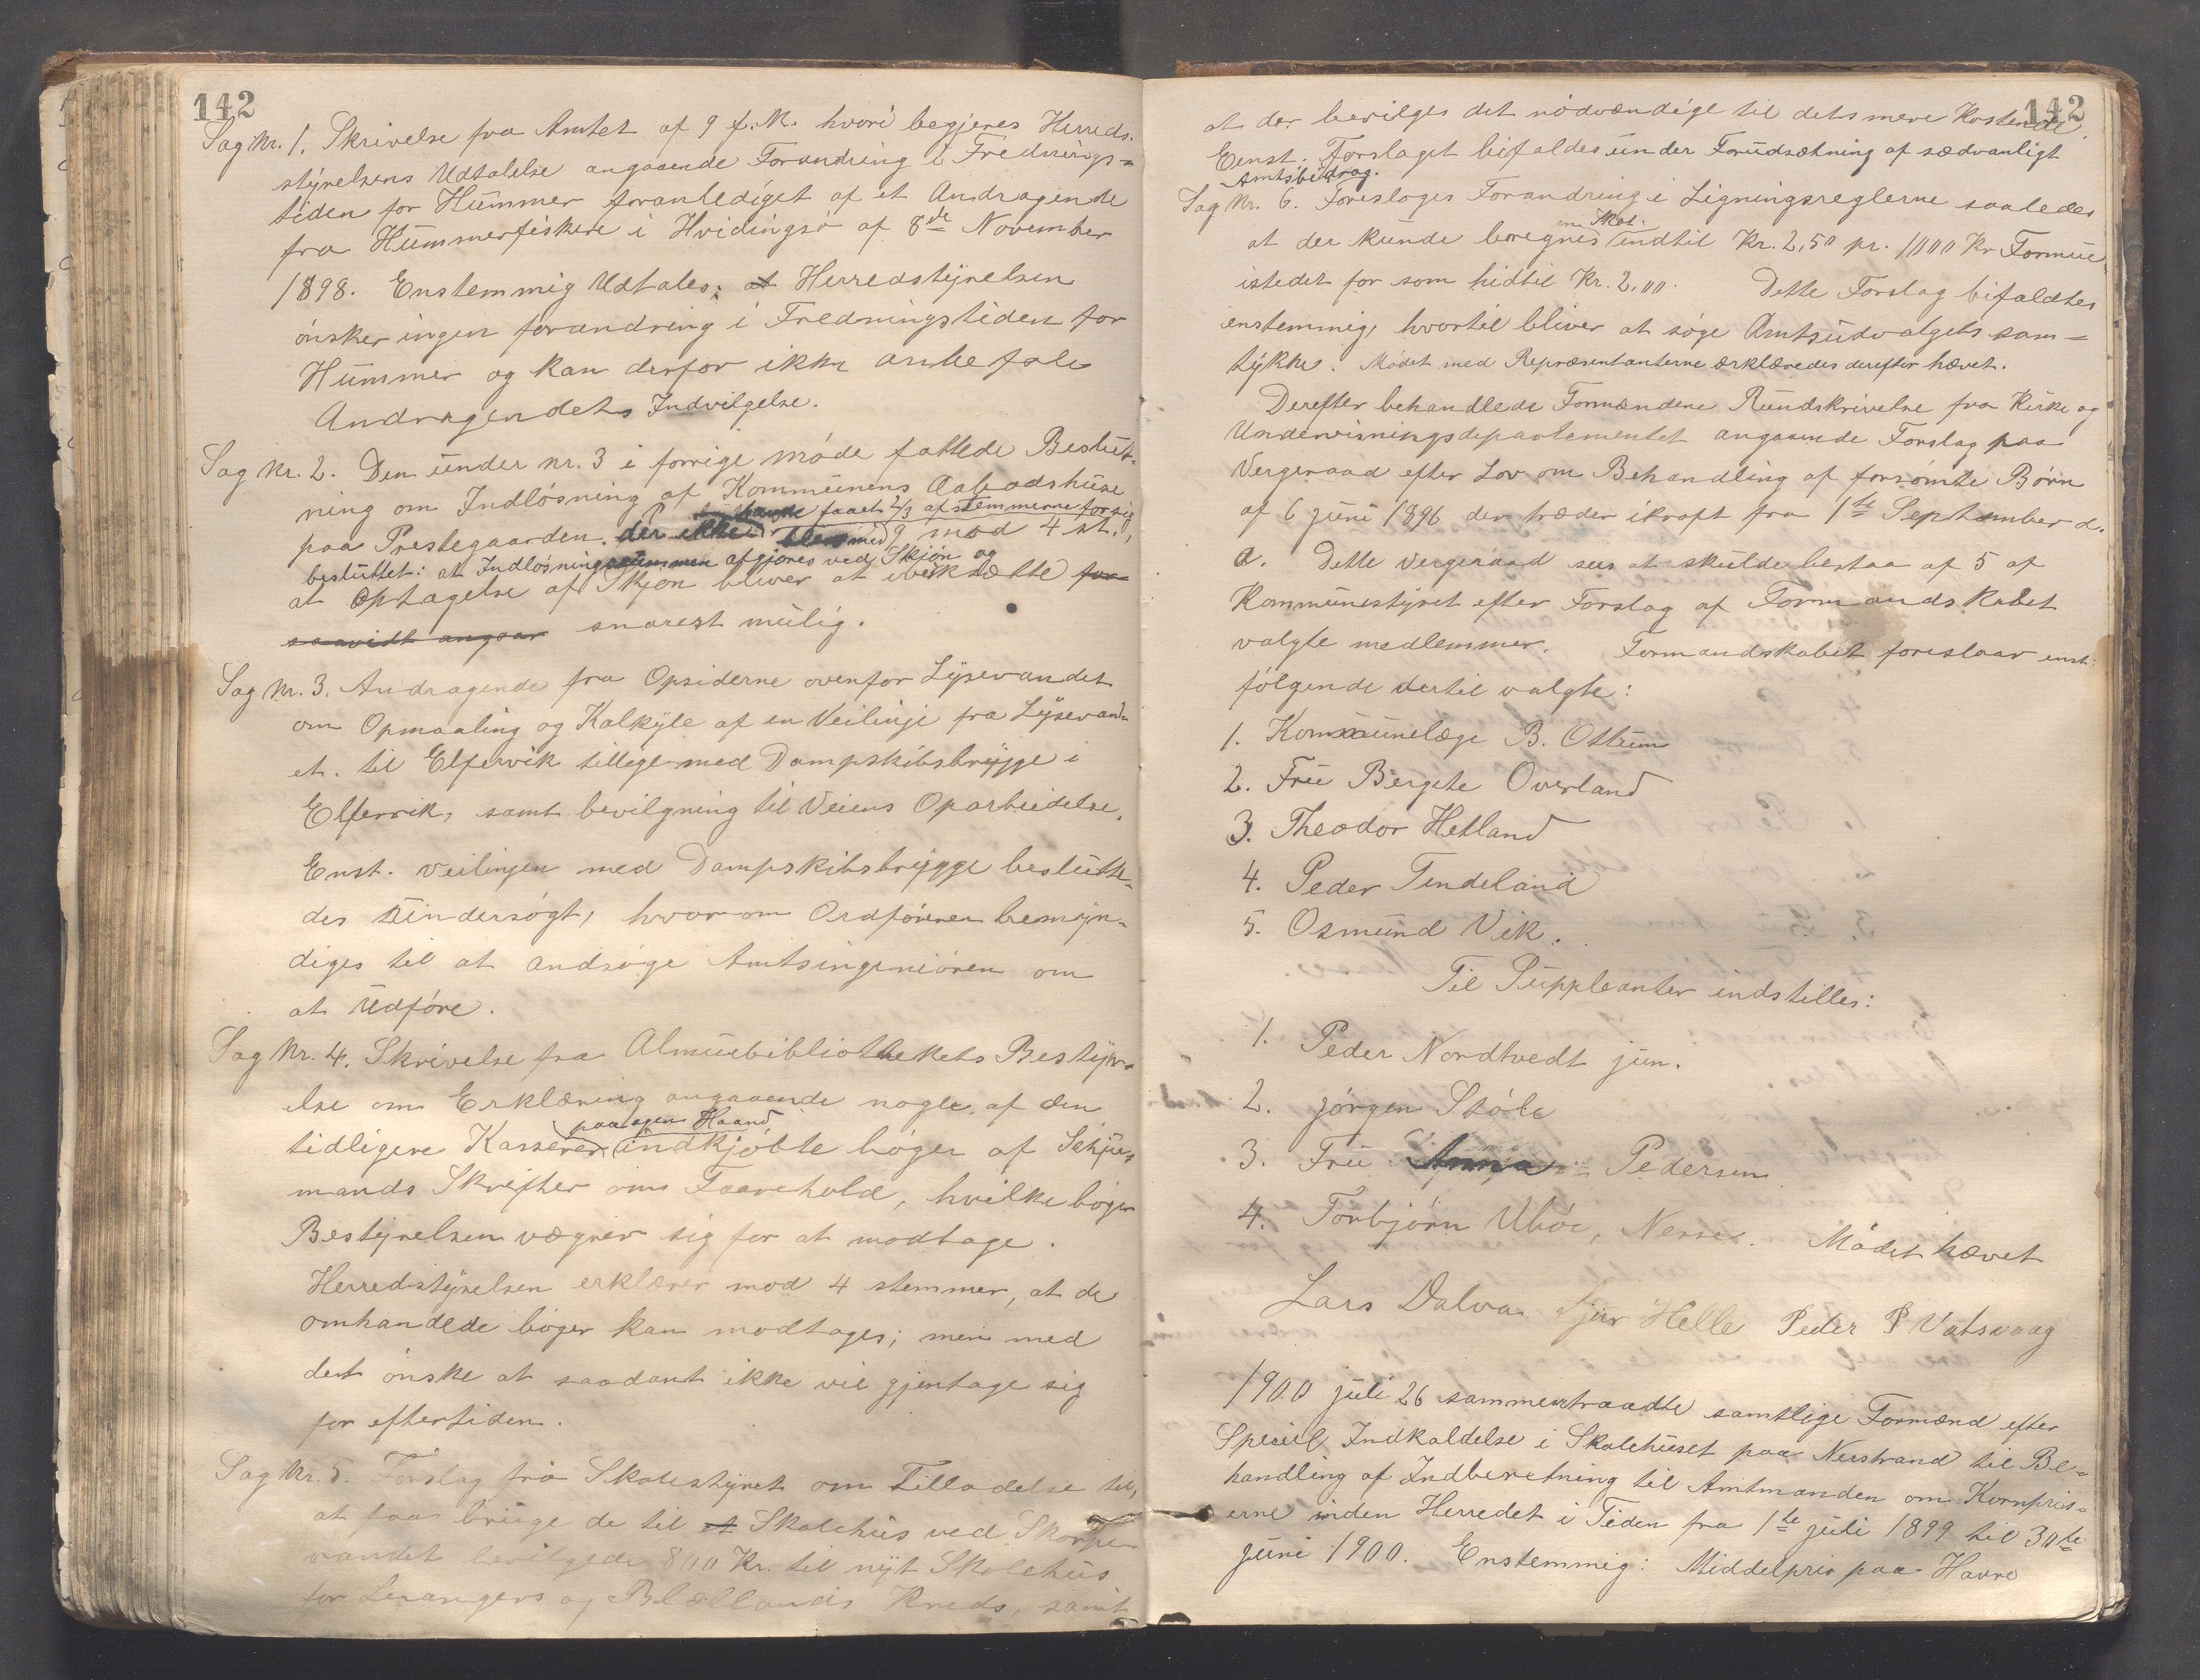 142
Sag Nr. 1. Skrivelse fra Amtet af 9 f. M. hvori begjeres Herreds-
styrelsens Udtalelse angaaende Forandring i Frednings-
tiden for Hummer foranlediget af et Andragende
fra Hummerfiskere i Hvidingsø af 8de November
1898. Enstemmig Udtales: at Herredstyrelsen
ønsker ingen forandring i Fredningstiden for
Hummer og kan derfor ikke anbefale
Andragendets Indvilgelse.
Sag Nr. 2. Den under nr. 3 i forrige møde fattede Beslut-
ning om Indløsning af Kommunens Aabodshuse
havde faaet 2/3 af stemmerne for sig
paa Prestegaarden, der ikke blev med 9 mod 4 st.,
besluttet: at Indløsningssummen afgjøres ved Skjøn og
at Optagelse af Skjøn bliver at iverksætte for
saavidt angaar snarest mulig.
Sag Nr. 3. Andragende fra Opsiderne ovenfor Lysevandet
om Opmaaling og Kalkyle af en Veilinje fra Lysevand-
et til Elfervik tillige med Dampskibsbrygge i
Elfervik, samt bevilgning til Veiens Oparbeidelse.
Enst. Veilinjen med Dampskibsbrygge beslutte-
des Undersøgt, hvorom Ordføreren bemyn-
diges til at andsøge Amtsingeniøren om
at Udføre.
Sag Nr. 4. Skrivelse fra Almuebibliothekets Bestyr-
else om Erklæring angaaende nogle af den
paa egen Haand
tidligere Kasserer indkjøbte bøger af Schju-
mands Skrifter om Faarehold, hvilke bøger
Bestyrelsen vægrer sig for at modtage.
Herredstyrelsen erklærer mod 4 stemmer, at de
omhandlede bøger kan modtages; men med
det ønske at saadant ikke vil gjentage sig
for eftertiden.
Sag Nr. 5. Forslag fra Skolestyret om Tilladelse til,
at faa bruge de til et Skolehus ved Skorpe-
vandet bevilgede 800 Kr. til nyt Skolehus
for Lerangers og Blællands Kreds, samt
142
at der bevilges det nødvændige til dets mere Kostende
Eenst. Forslaget bifaldes under Forudsætning af sædvanligt
Amtsbidrag.
Sag Nr. 6. Foresloges Forandring i Ligningsreglerne saaledes
en Skat
at der kunde beregnes indtil Kr. 2,50 pr. 1000 Kr Formue
istedet for som hidtil Kr. 2,00. Dette Forslag bifaldtes
enstemmig, hvortil bliver at søge Amtsudvalgets sam-
tykke. Mødet med Repræsentanterne ærklæredes derefter hævet.
Derefter behandlede Formændene Rundskrivelse fra Kirke og
Undervisningsdepartementet angaaende Forslag paa
Vergeraad efter Lov om Behandling af forsømte Børn
af 6 juni 1896 der træder ikraft fra 1te September d.
a. Dette Vergeraad sees at skulde bestaa af 5 af
Kommunestyret efter Forslag af Formandskabet
valgte medlemmer. Formandskabet foreslaar enst:
følgende dertil valgte:
1. Kommunelæge B. Ottum
2. Fru Bergete Overland
3. Theodor Hetland
4. Peder Tendeland
5. Osmund Vik.
Til Suppleanter indstilles:
1. Peder Nordtvedt jun.
2. Jørgen Støle
3. Fru Anna Pedersen
4. Torbjørn Ubøe, Nerse. Mødet hævet
Lars Dalva Sjur Helle Peder P Vatsvaag
1900 juli 26 sammentraadte samtlige Formænd efter
Speciel Indkaldelse i Skolehuset paa Nerstrand til Be-
handling af Indberetning til Amtmanden om Kornpris-
erne inden Herredet i Tiden fra 1te juli 1899 til 30te
juni 1900. Enstemmig: Middelpris paa Havre